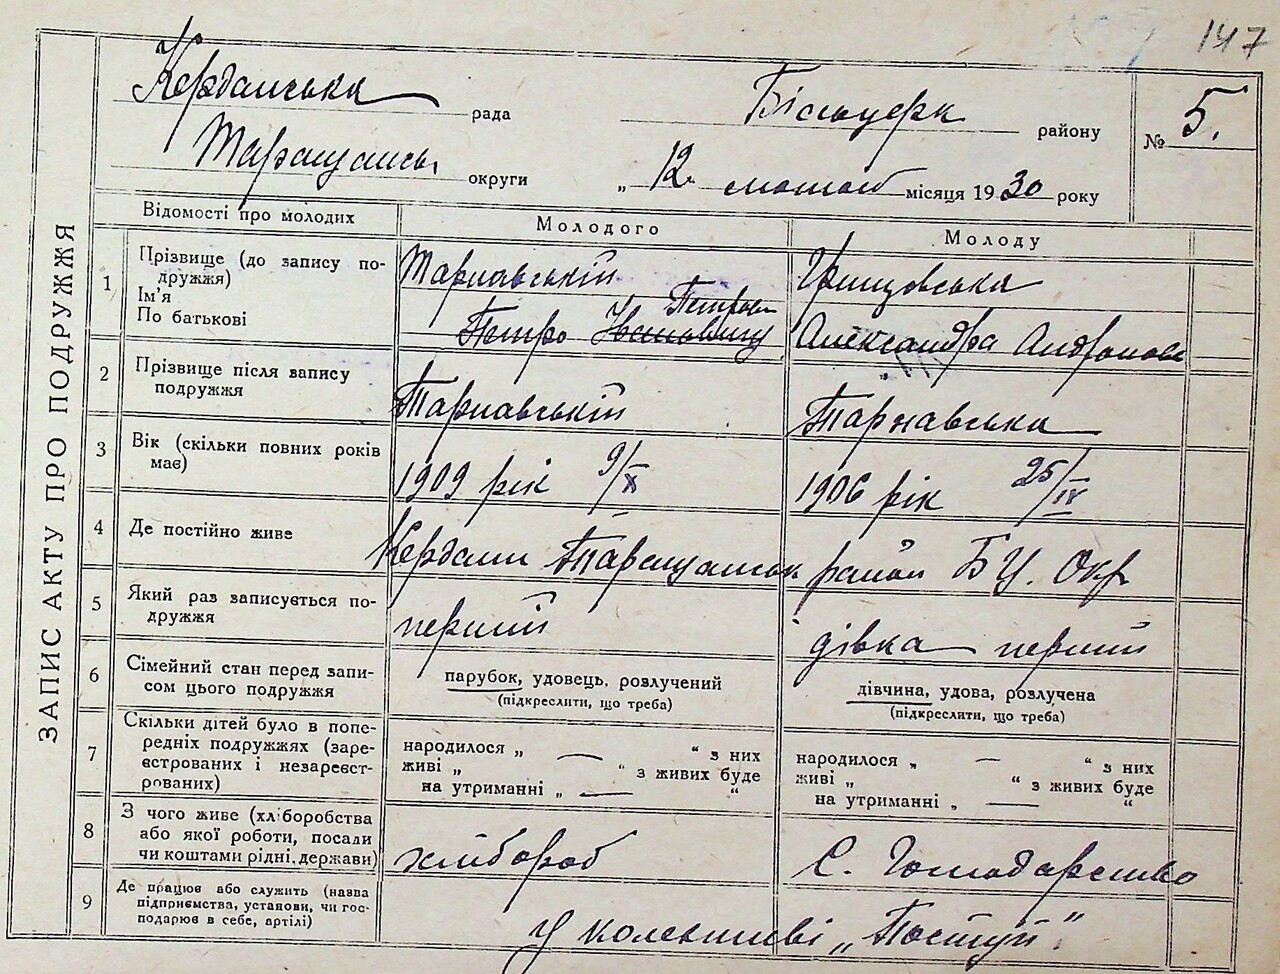 147
Керданська рада Білоцерк району № 5.
Таращансь. округи „ 12 " лютого місяця 1930 року
ЗАПИС АКТУ ПРО ПОДРУЖЖЯ
Відомості про молодих Молодого Молоду
1 Прізвище (до запису по-
дружжя)
Ім'я
По батькові
Тарнавській
Петро Івановичу Петров
Грицовська
Александра Андронов
2 Прізвище після запису
подружжя
Тарнавській
Тарнавська
3 Вік (скільки повних років
має)
1909 рік 9/X
1906 рік 25/IV
4 Де постійно живе
Кердани Таращанськ район БЦ. Окр
5 Який раз записується по-
дружжя
перший
дівка перший
6 Сімейний стан перед запи-
сом цього подружжя
парубок, удовець, розлучений
(підкреслити, що треба)
дівчина, удова, розлучена
(підкреслити, що треба)
7 Скільки дітей було в попе-
редніх подружжях (заре-
єстрованих і незареєст-
рованих)
народилося „ — “ з них
живі „ “ з живих буде
на утриманні „ — “
народилося „ — “ з них
живі „ “ з живих буде
на утриманні „ — “
8 З чого живе (хліборобства
або якої роботи, посади
чи коштами рідні, держави)
хлібороб
С. Господарство
9 Де працює або служить (назва
підприємства, установи, чи гос-
подарює в себе, артілі)
У колективі „Поступ“